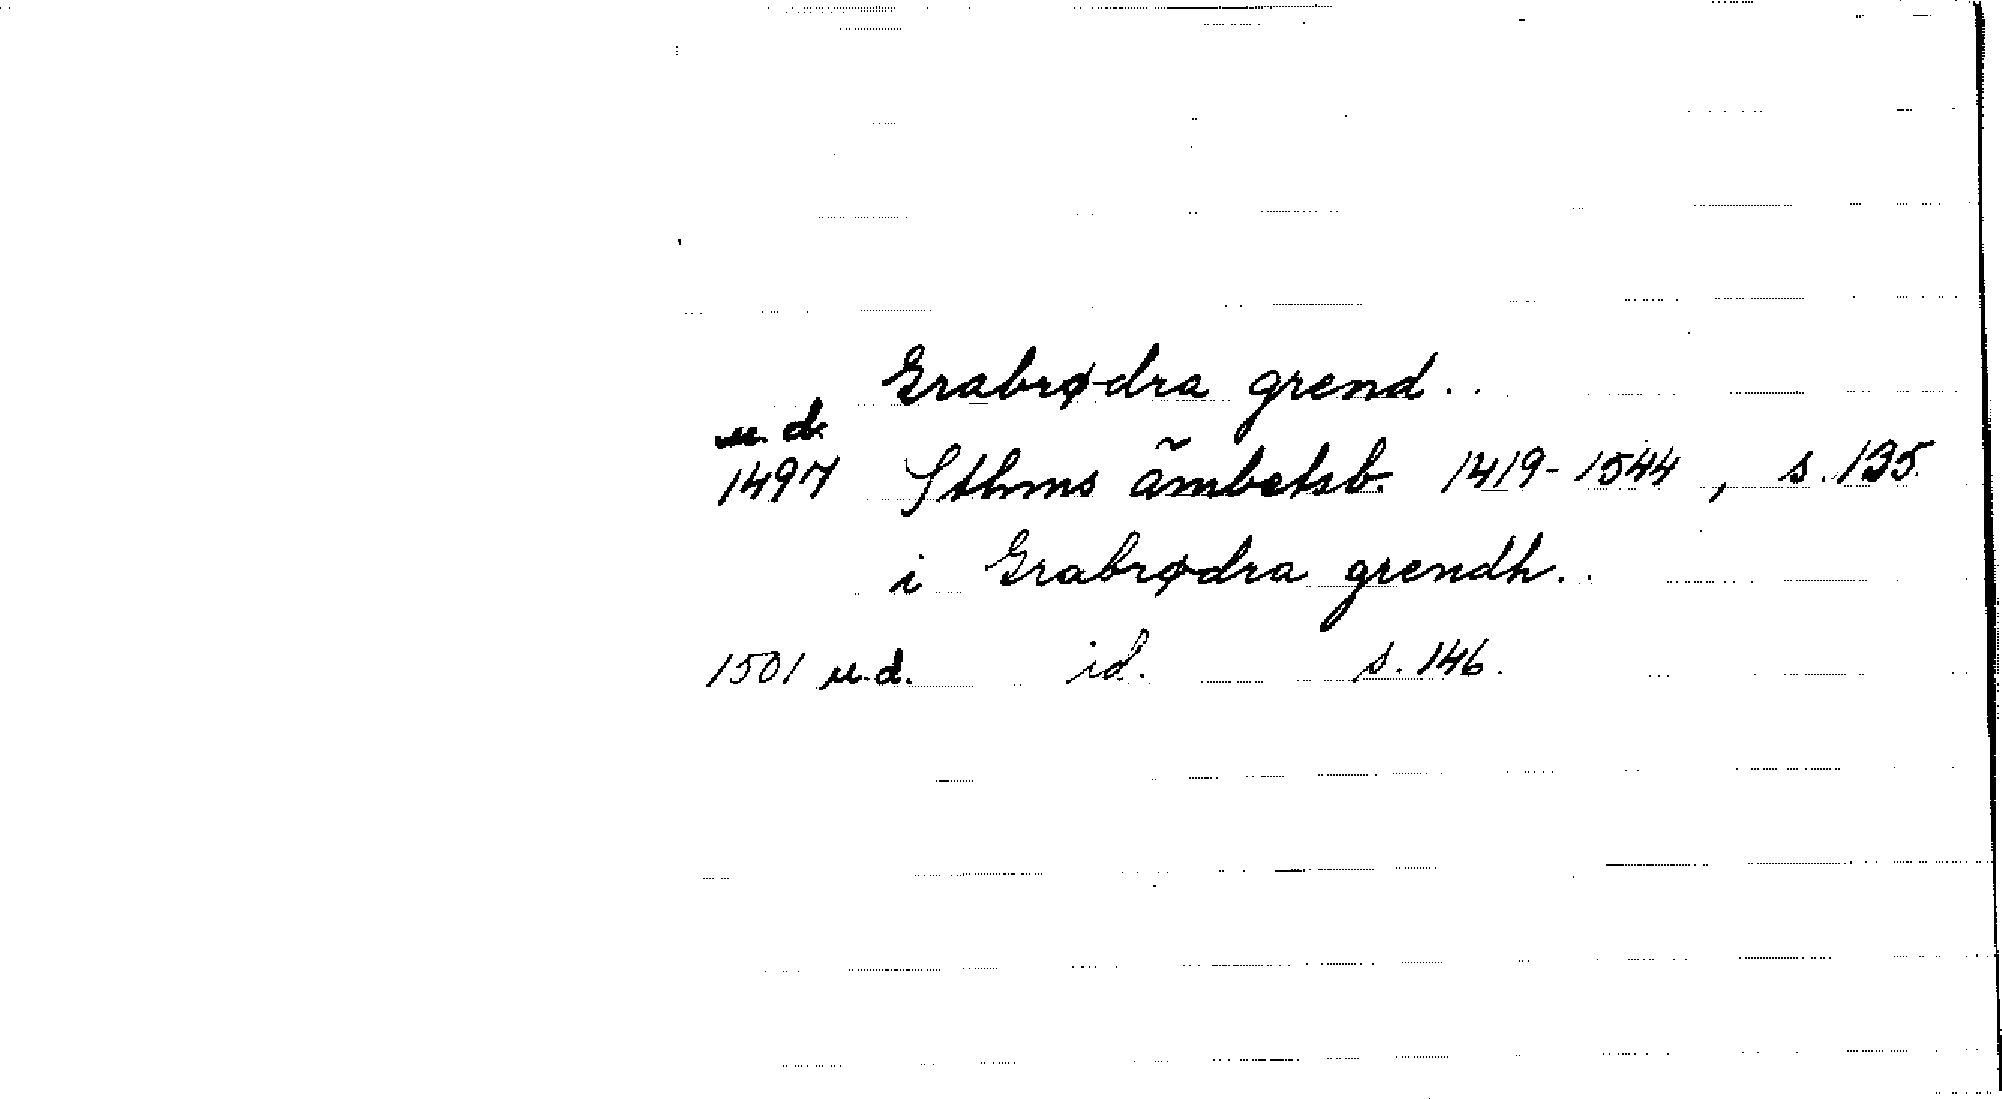 Grabrødra grend..
u.d.
1497 Sthms ämbetsb. 1419-1544, s. 135.
i Grabrødra grendh..
1501 u.d. id. s. 146.